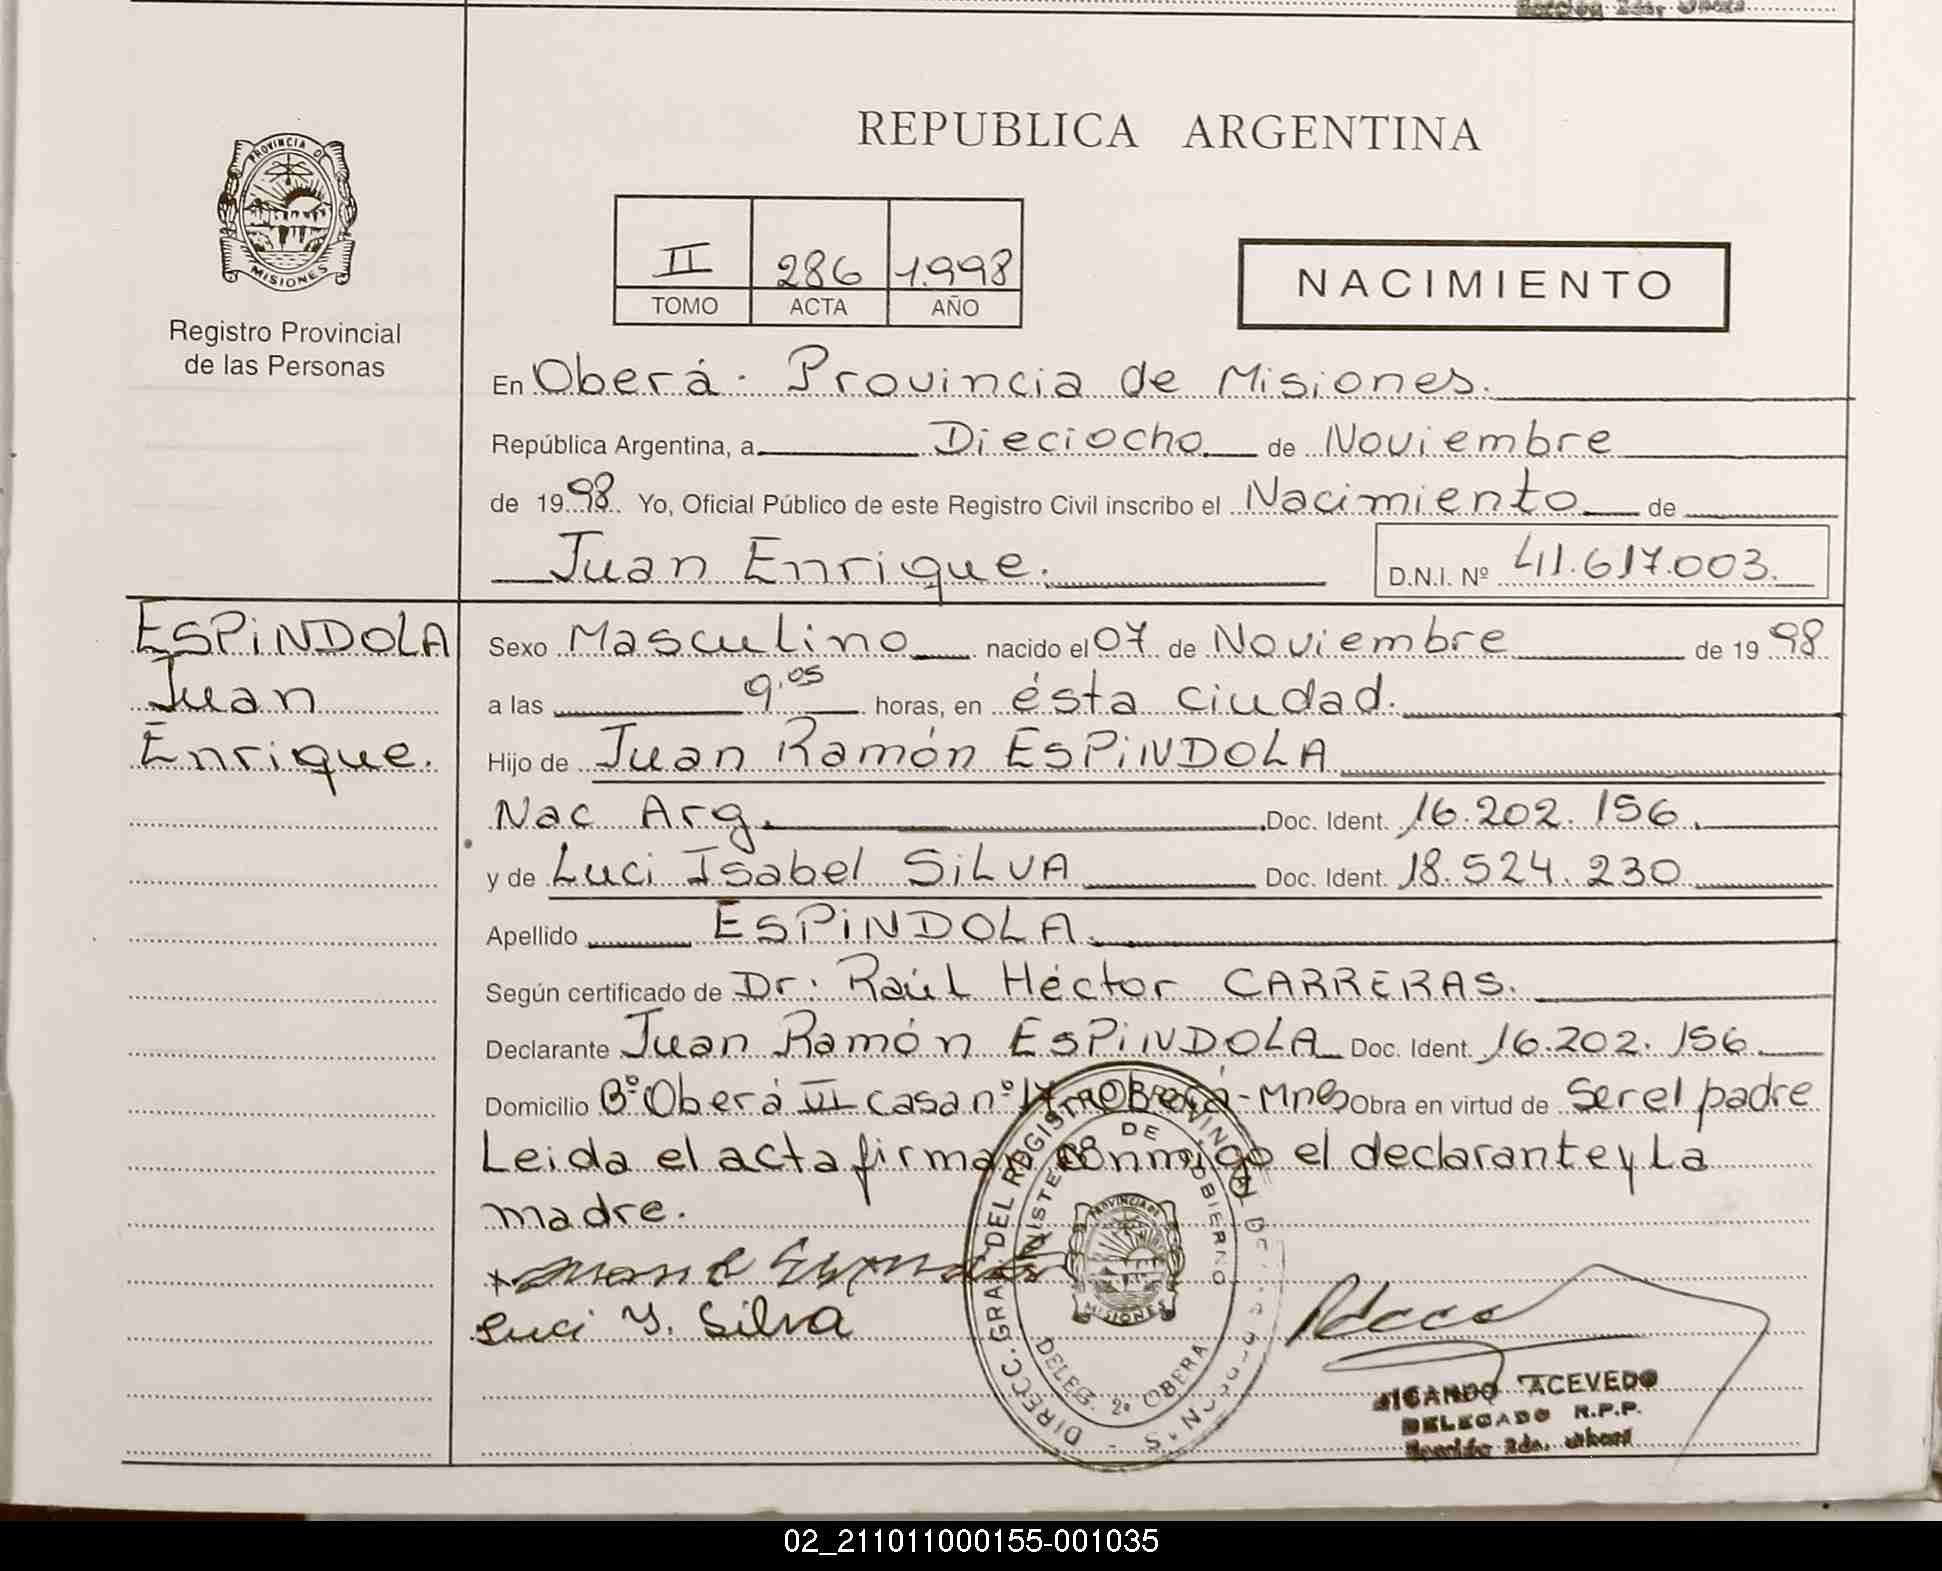 Sección 2da. Oberá
REPUBLICA ARGENTINA
PROVINCIA DE
MISIONES
Registro Provincial
de las Personas
II 286 1.998
TOMO ACTA AÑO
NACIMIENTO
En Oberá. Provincia de Misiones.
República Argentina, a Dieciocho de Noviembre
de 1998. Yo, Oficial Público de este Registro Civil inscribo el Nacimiento de
Juan Enrique. D.N.I. Nº 41.617.003.
ESPiNDOLA
Juan
Enrique.
Sexo Masculino nacido el 07 de Noviembre de 1998
a las 9.05 horas, en ésta ciudad.
Hijo de Juan Ramón ESPiNDOLA
Nac Arg. Doc. Ident. 16.202.156.
y de Luci Isabel SiLVA Doc. Ident. 18.524.230
Apellido ESPiNDOLA.
Según certificado de Dr. Raúl Héctor CARRERAS.
Declarante Juan Ramón ESPiNDOLA Doc. Ident. 16.202.156
Domicilio Bº Oberá VI casa nº 17 Oberá - Mnes Obra en virtud de Ser el padre
Leida el acta firman conmigo el declarante y La
madre.
Luci Y. Silva
DIRECC. GRAL DEL REGISTRO PROVINCIAL DE LAS PERSONAS
MINISTERIO DE GOBIERNO
PROVINCIA DE
MISIONES
DELEG. 2º OBERA
ACEVEDO
DELEGADO R.P.P.
Sección 2da. Oberá
02_211011000155-001035